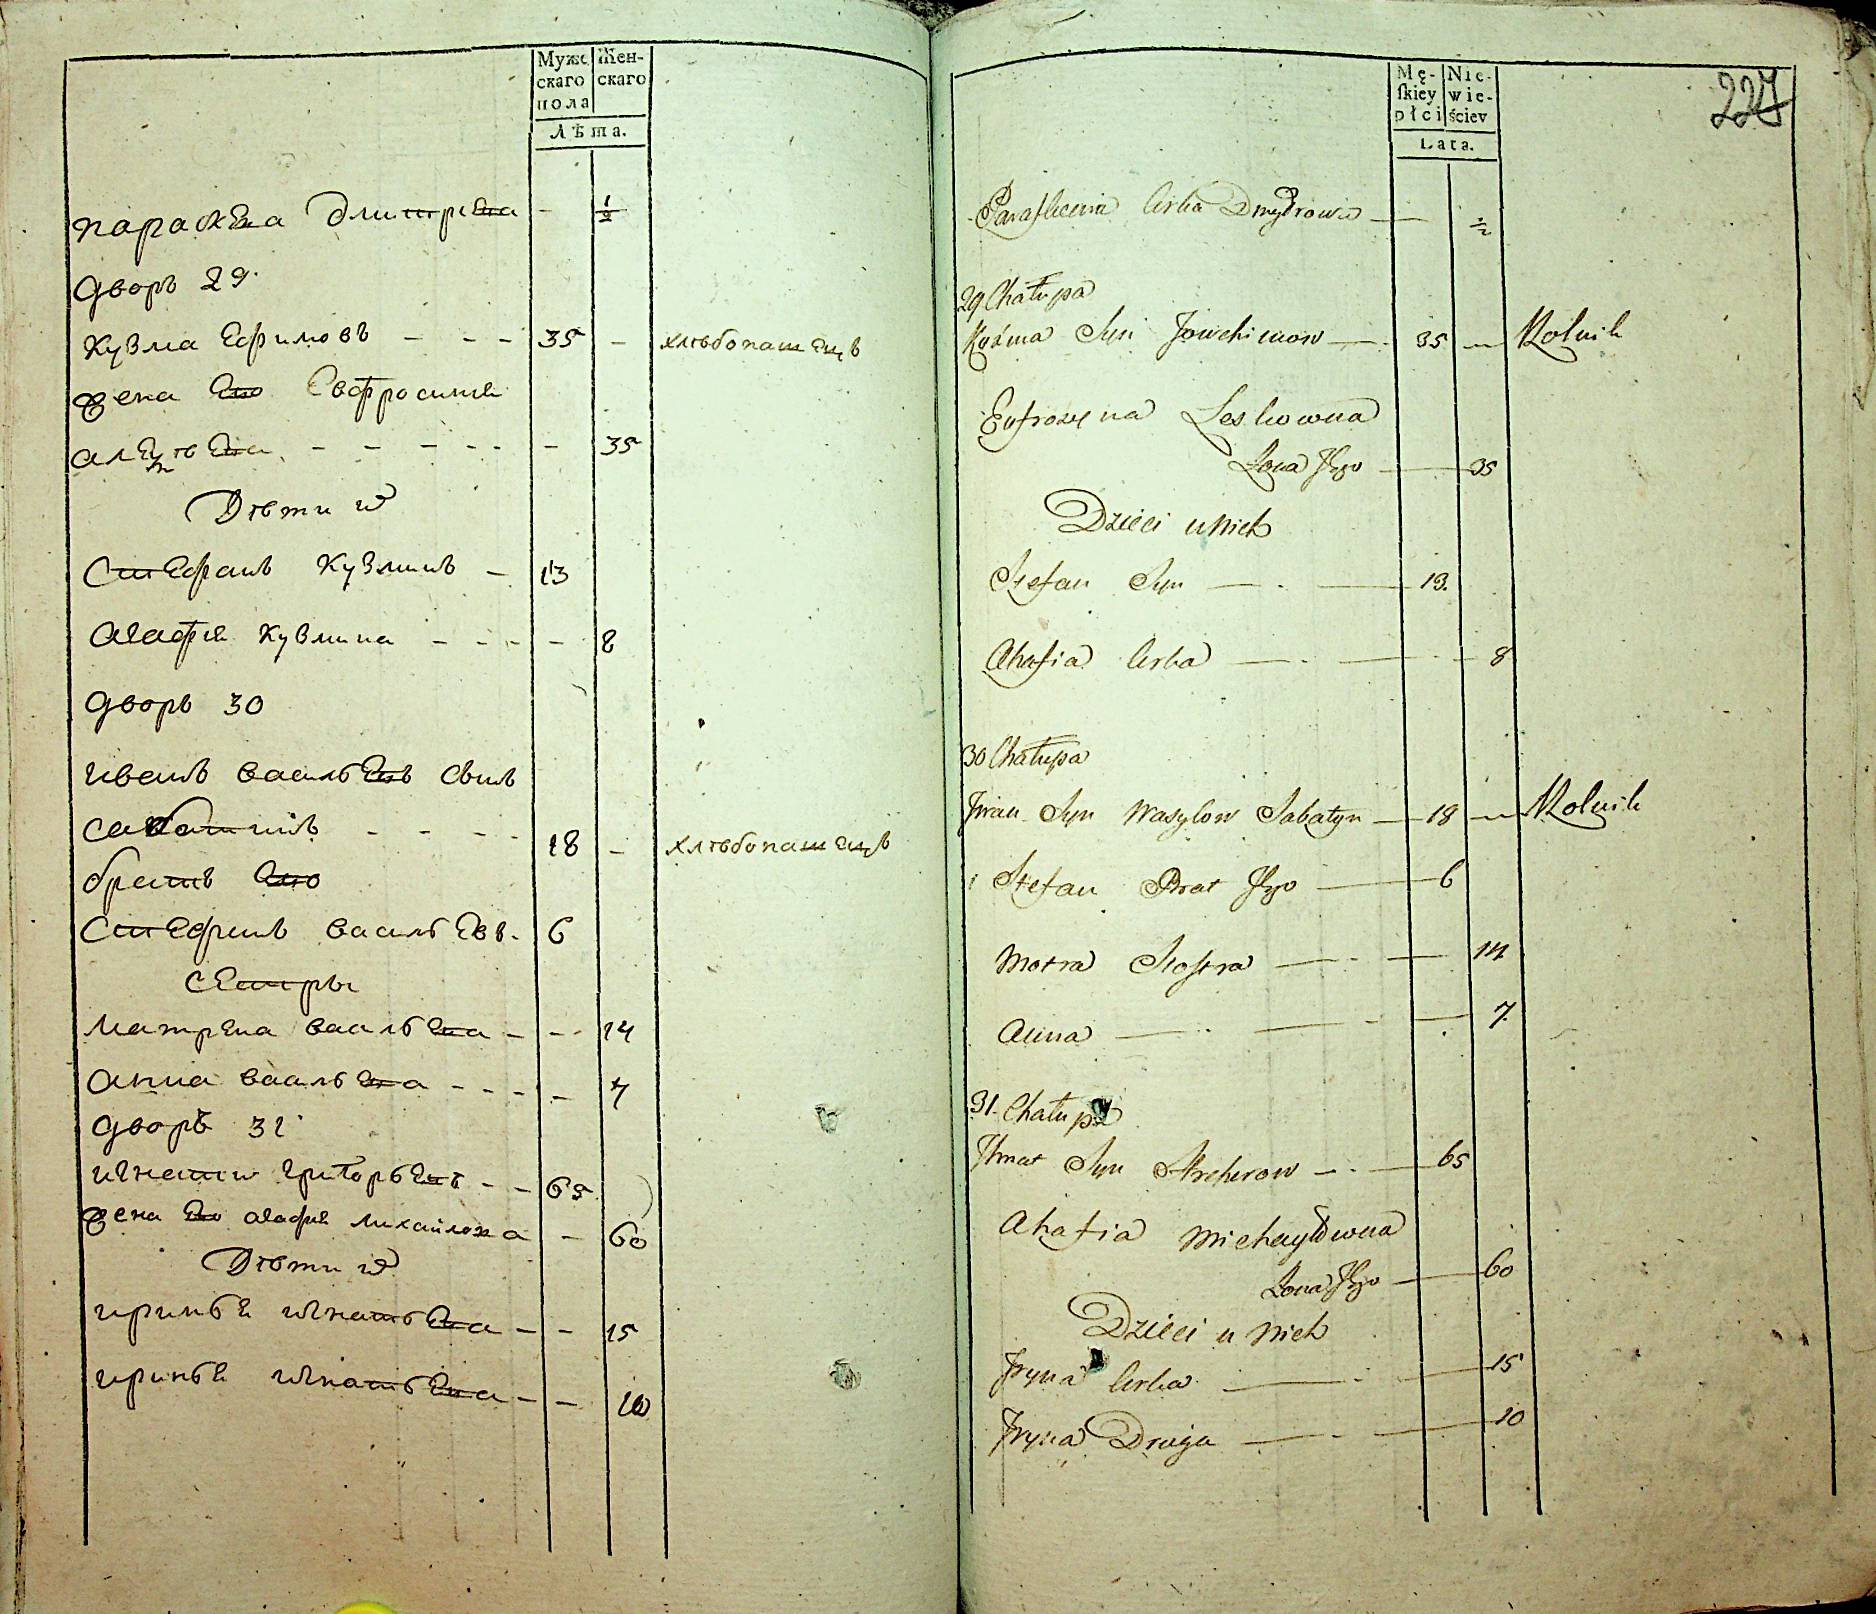 Мужескаго пола
Женскаго
Лѣта.
параскева дмитрева - ½
дворъ 29.
кузма Ефимовъ - - - 35 - хлѣбопашецъ
жена Его Евфросиния
алексѣева - - - - - - 35
Дѣти ихъ
Стефанъ кузминъ - 13
агафия кузмина - - - - 8
дворъ 30
иванъ васильевъ сынъ
сабатинъ - - - - 18 - хлѣбопашецъ
братъ Его
Стефанъ васильевъ. 6
сестры
матрена васильева - - - 14
анна васильева - - - - 7
дворъ 31
игнатий григорьевъ - - 65
жена Его агафия михайлова - 60
Дѣти ихъ
иринья игнатьева - - 15
иринья игнатьева - - 10
Męskiey płci
Niewieściey
Lata.
227
Paraskewia Corka Dmytrowa — ½
29 Chałupa
Koźma Syn Jowchimow — 35 — Rolnik
Eufrozyna Leskowna
Żona Jego — 35
Dzieci u Nich
Stefan Syn — 13.
Ahafia Corka — 8
30 Chałupa
Iwan Syn Wasylow Sabatyn — 18 — Rolnik
Stefan Brat Jego — 6
Motra Siostra — 14
Anna — 7.
31. Chałupa
Ihnat Syn Hrehorow — 65
Ahafia Michayłowna
Żona Jego — 60
Dzieci u Nich
Iryna Corka — 15
Iryna Druga — 10